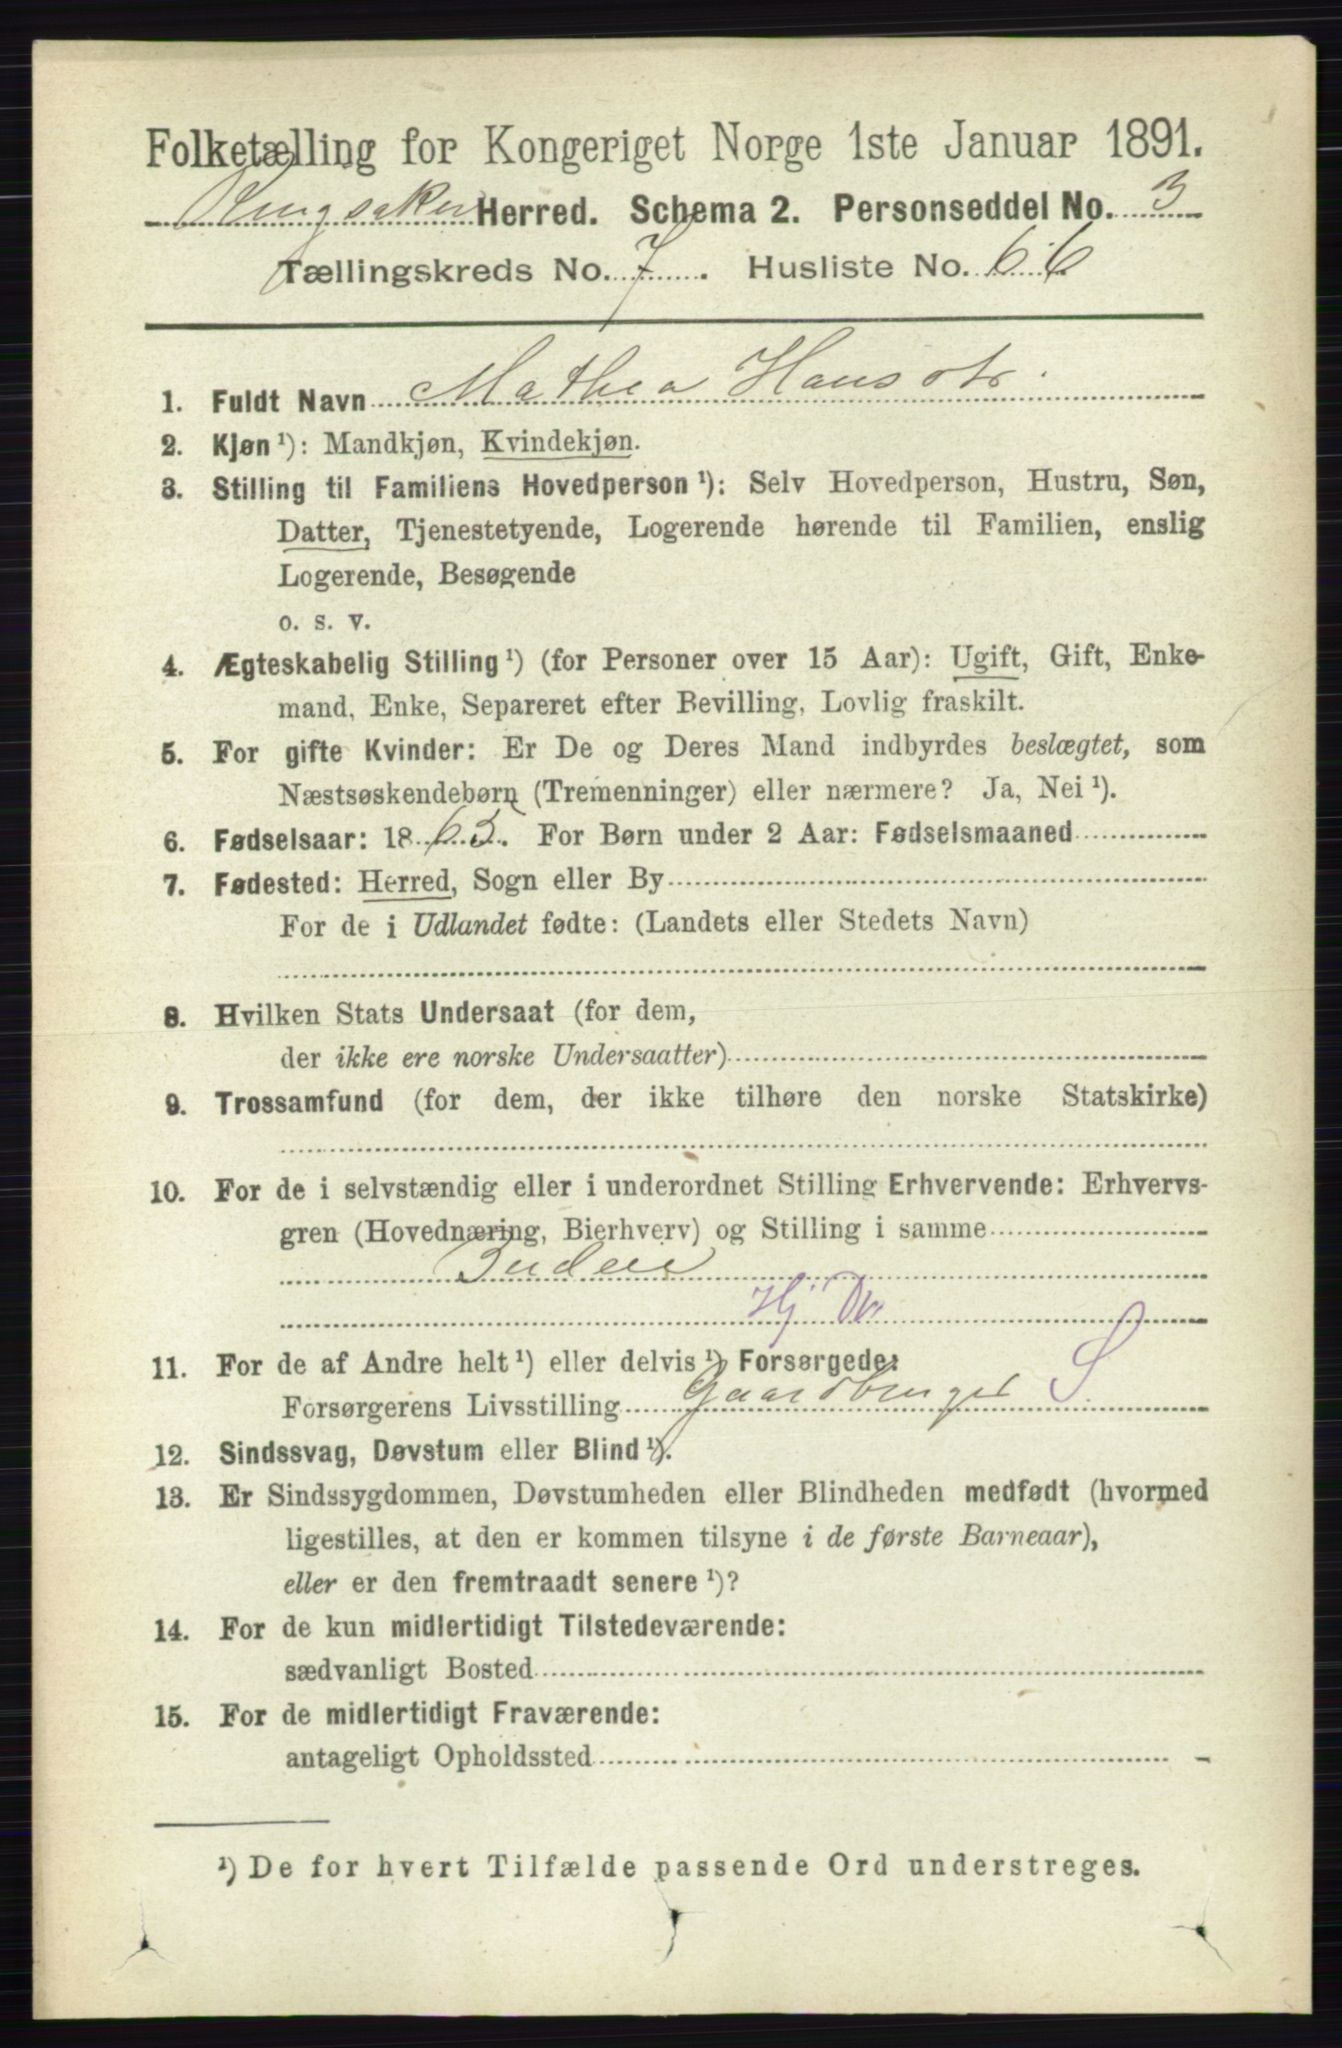 Folketælling for Kongeriget Norge 1ste Januar 1891.
Ringsaker Herred. Schema 2. Personseddel No. 3
Tællingskreds No. 7. Husliste No. 66
1. Fuldt Navn Mathea Hansdtr.
2. Kjøn ¹): Mandkjøn, Kvindekjøn.
3. Stilling til Familiens Hovedperson ¹): Selv Hovedperson, Hustru, Søn,
Datter, Tjenestetyende, Logerende hørende til Familien, enslig
Logerende, Besøgende
o. s. v.
4. Ægteskabelig Stilling ¹) (for Personer over 15 Aar): Ugift, Gift, Enke-
mand, Enke, Separeret efter Bevilling, Lovlig fraskilt.
5. For gifte Kvinder: Er De og Deres Mand indbyrdes beslægtet, som
Næstsøskendebørn (Tremenninger) eller nærmere? Ja, Nei ¹).
6. Fødselsaar: 1865. For Børn under 2 Aar: Fødselsmaaned
7. Fødested: Herred, Sogn eller By
For de i Udlandet fødte: (Landets eller Stedets Navn)
8. Hvilken Stats Undersaat (for dem,
der ikke ere norske Undersaatter)
9. Trossamfund (for dem, der ikke tilhøre den norske Statskirke)
10. For de i selvstændig eller i underordnet Stilling Erhvervende: Erhvervs-
gren (Hovednæring, Bierhverv) og Stilling i samme
Hj
11. For de af Andre helt ¹) eller delvis ¹) Forsørgede:
Forsørgerens Livsstilling Gaardbruger S
12. Sindssvag, Døvstum eller Blind ¹).
13. Er Sindssygdommen, Døvstumheden eller Blindheden medfødt (hvormed
ligestilles, at den er kommen tilsyne i de første Barneaar),
eller er den fremtraadt senere ¹)?
14. For de kun midlertidigt Tilstedeværende:
sædvanligt Bosted
15. For de midlertidigt Fraværende:
antageligt Opholdssted
¹) De for hvert Tilfælde passende Ord understreges.